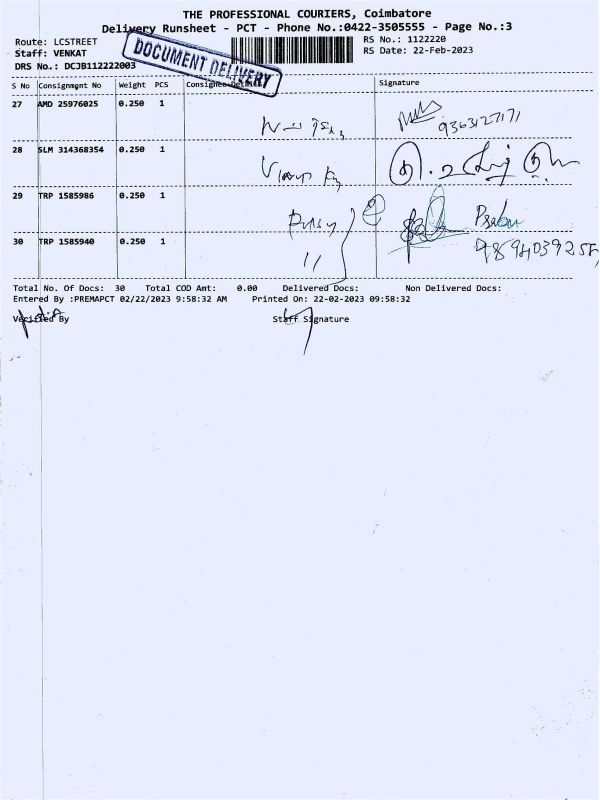 THE PROFESSIONAL COURIERS, Coimbatore
Delivery Runsheet - PCT - Phone No.:0422-3505555 - Page No.:3
Route: LCSTREET
RS No.: 1122220
Staff: VENKAT
RS Date: 22-Feb-2023
DRS No.: DCJB112222003
DOCUMENT DELIVERY
S No Consignmgnt No Weight PCS Consignee Details Signature
27 AMD 25976025 0.250 1
9363127171
28 SLM 314368354 0.250 1
29 TRP 1585986 0.250 1
Prabu
30 TRP 1585940 0.250 1
11
Total No. Of Docs: 30 Total COD Amt: 0.00 Delivered Docs: Non Delivered Docs:
Entered By :PREMAPCT 02/22/2023 9:58:32 AM Printed On: 22-02-2023 09:58:32
Verified By Staff Signature